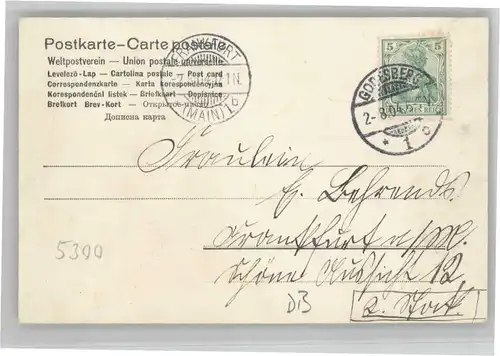 Postkarte-Carte postale
Weltpostverein - Union postale universelle
Levelező-Lap - Cartolina postale - Post card
Correspondenzkarte - Karta korespondencyjna
Korespondenční listek - Briefkaart - Dopisnice
Brefkort Brev-Kort - Открытое
Дописна карта
FRANKFURT
(MAIN) 1
5 5
GODESBERG
2-8.04
* 1
Fräulein
E. Behrends
Frankfurt a/M.
Schöne Aussicht 12,
2. Stock.
5300
DB